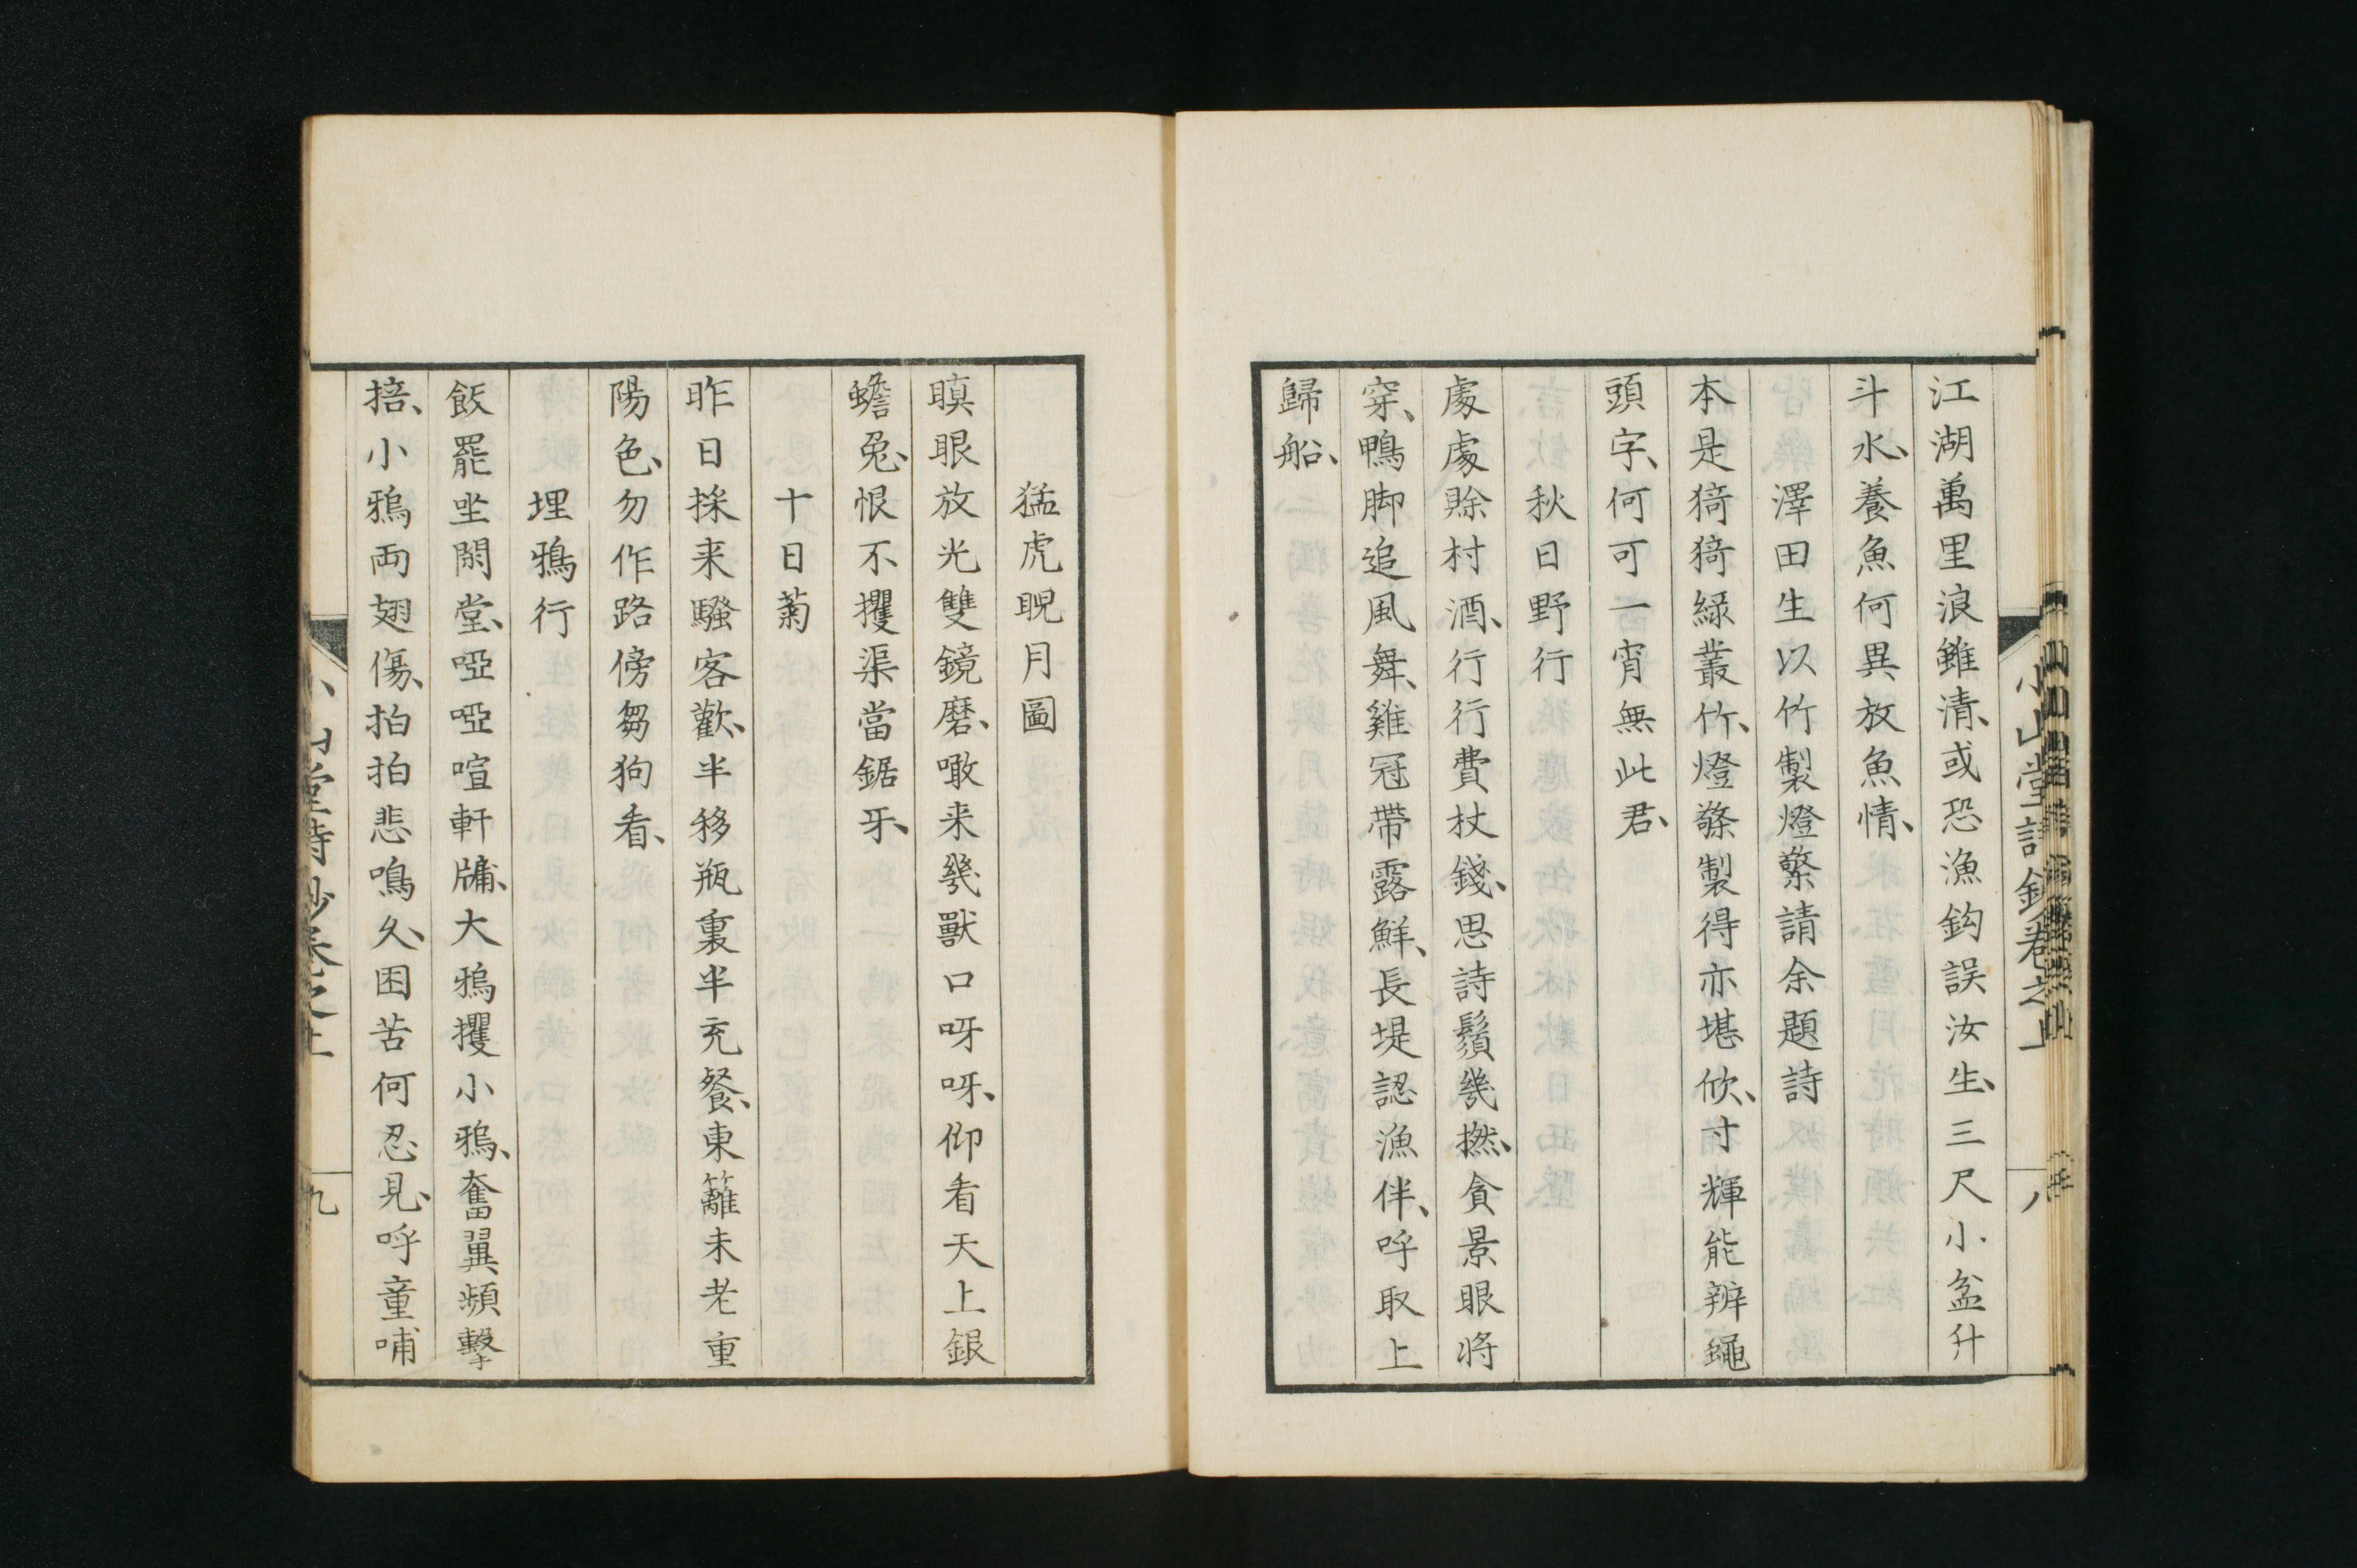 江湖萬里浪雖清、或恐漁鈎誤汝生、三尺小盆升
斗水、養魚何異放魚情、
澤田生以竹製燈檠請余題詩
本是猗猗緑叢竹、燈檠製得亦堪欣、寸輝能辨蠅
頭字、何可一宵無此君、
秋日野行
處處賒村酒、行行費杖錢、思詩鬚幾撚、貪景眼将
穿、鴨脚追風舞、雞冠帶露鮮、長堤認漁伴、呼取上
歸船、
小山堂詩鈔卷之上
八
猛虎睨月圖
瞋眼放光雙鏡磨、噉来幾獸口呀呀、仰看天上銀
蟾兔、恨不攫渠當鋸牙、
十日菊
昨日採来騷客歡、半移瓶裏半充餐、東籬未老重
陽色、勿作路傍芻狗看、
埋鴉行
飯罷坐閑堂、啞啞喧軒牗、大鴉攫小鴉、奮翼頻擊
掊、小鴉両翅傷、拍拍悲鳴久、困苦何忍見、呼童哺
小山堂詩鈔卷之上
九